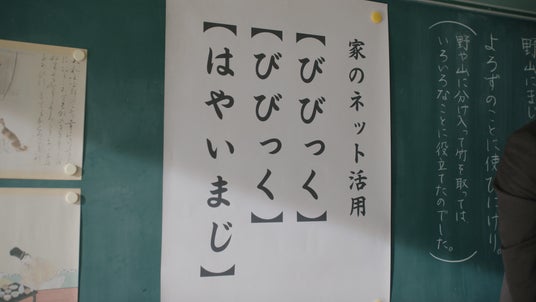 野山にまじ
よろづのことに使ひけり。
（野や山に分け入って竹を取っては
いろいろなことに役立てたのでした。）
家のネット活用
【びびっく】
【びびっく】
【はやいまじ】